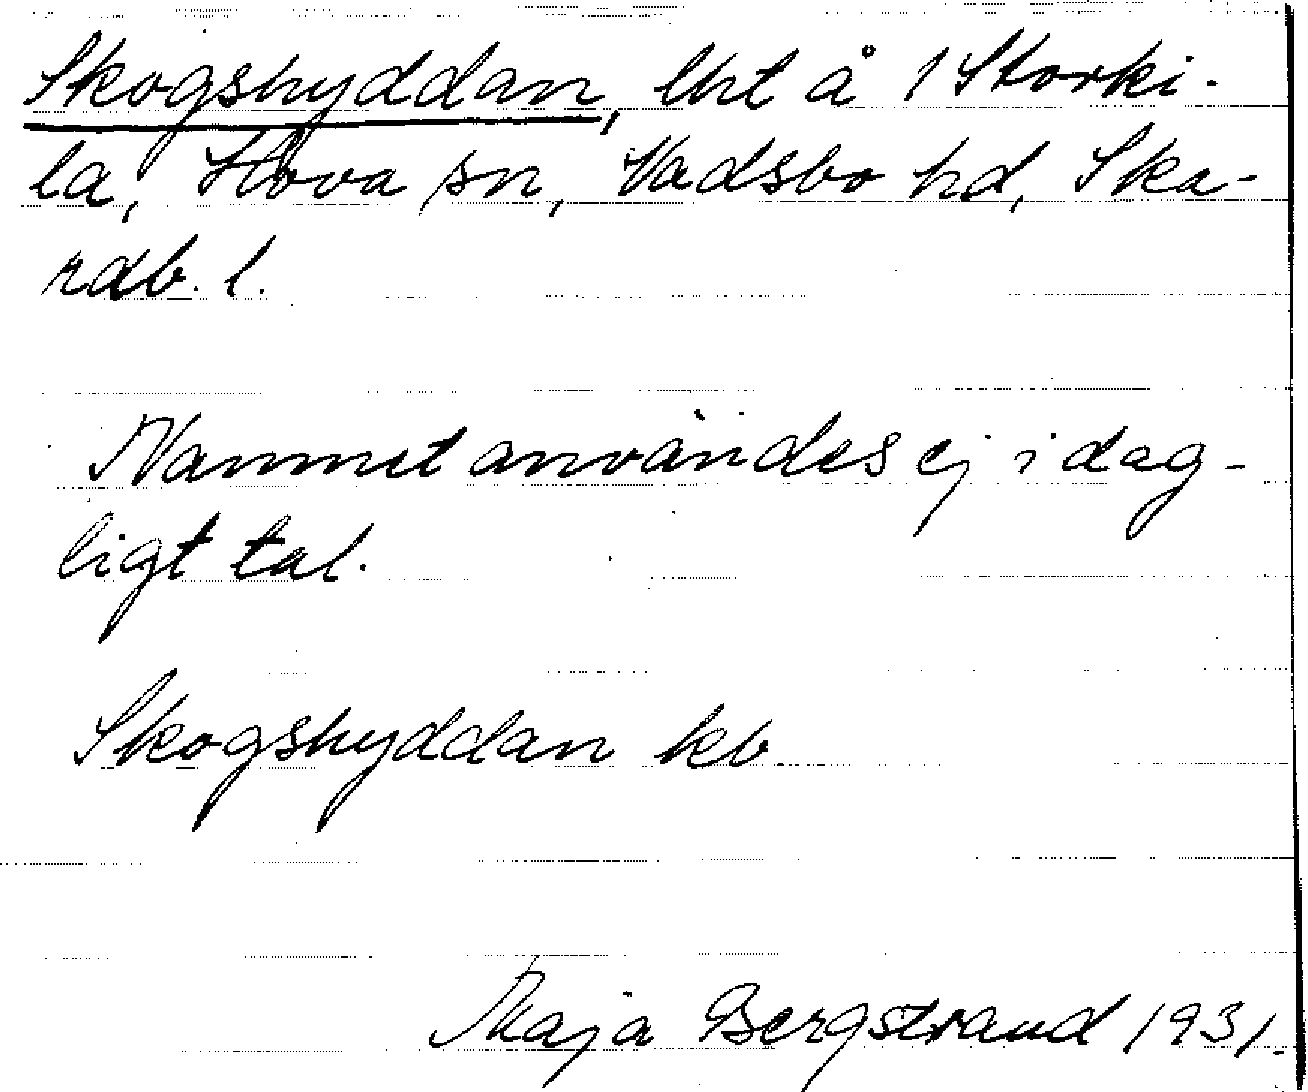 Skogshyddan, lht å 1 Storki-
la, Hova sn, Vadsbo hd, Ska-
rab. l.
Namnet användes ej i dag-
ligt tal.
Skogshyddan kb
Maja Bergstrand 1931.